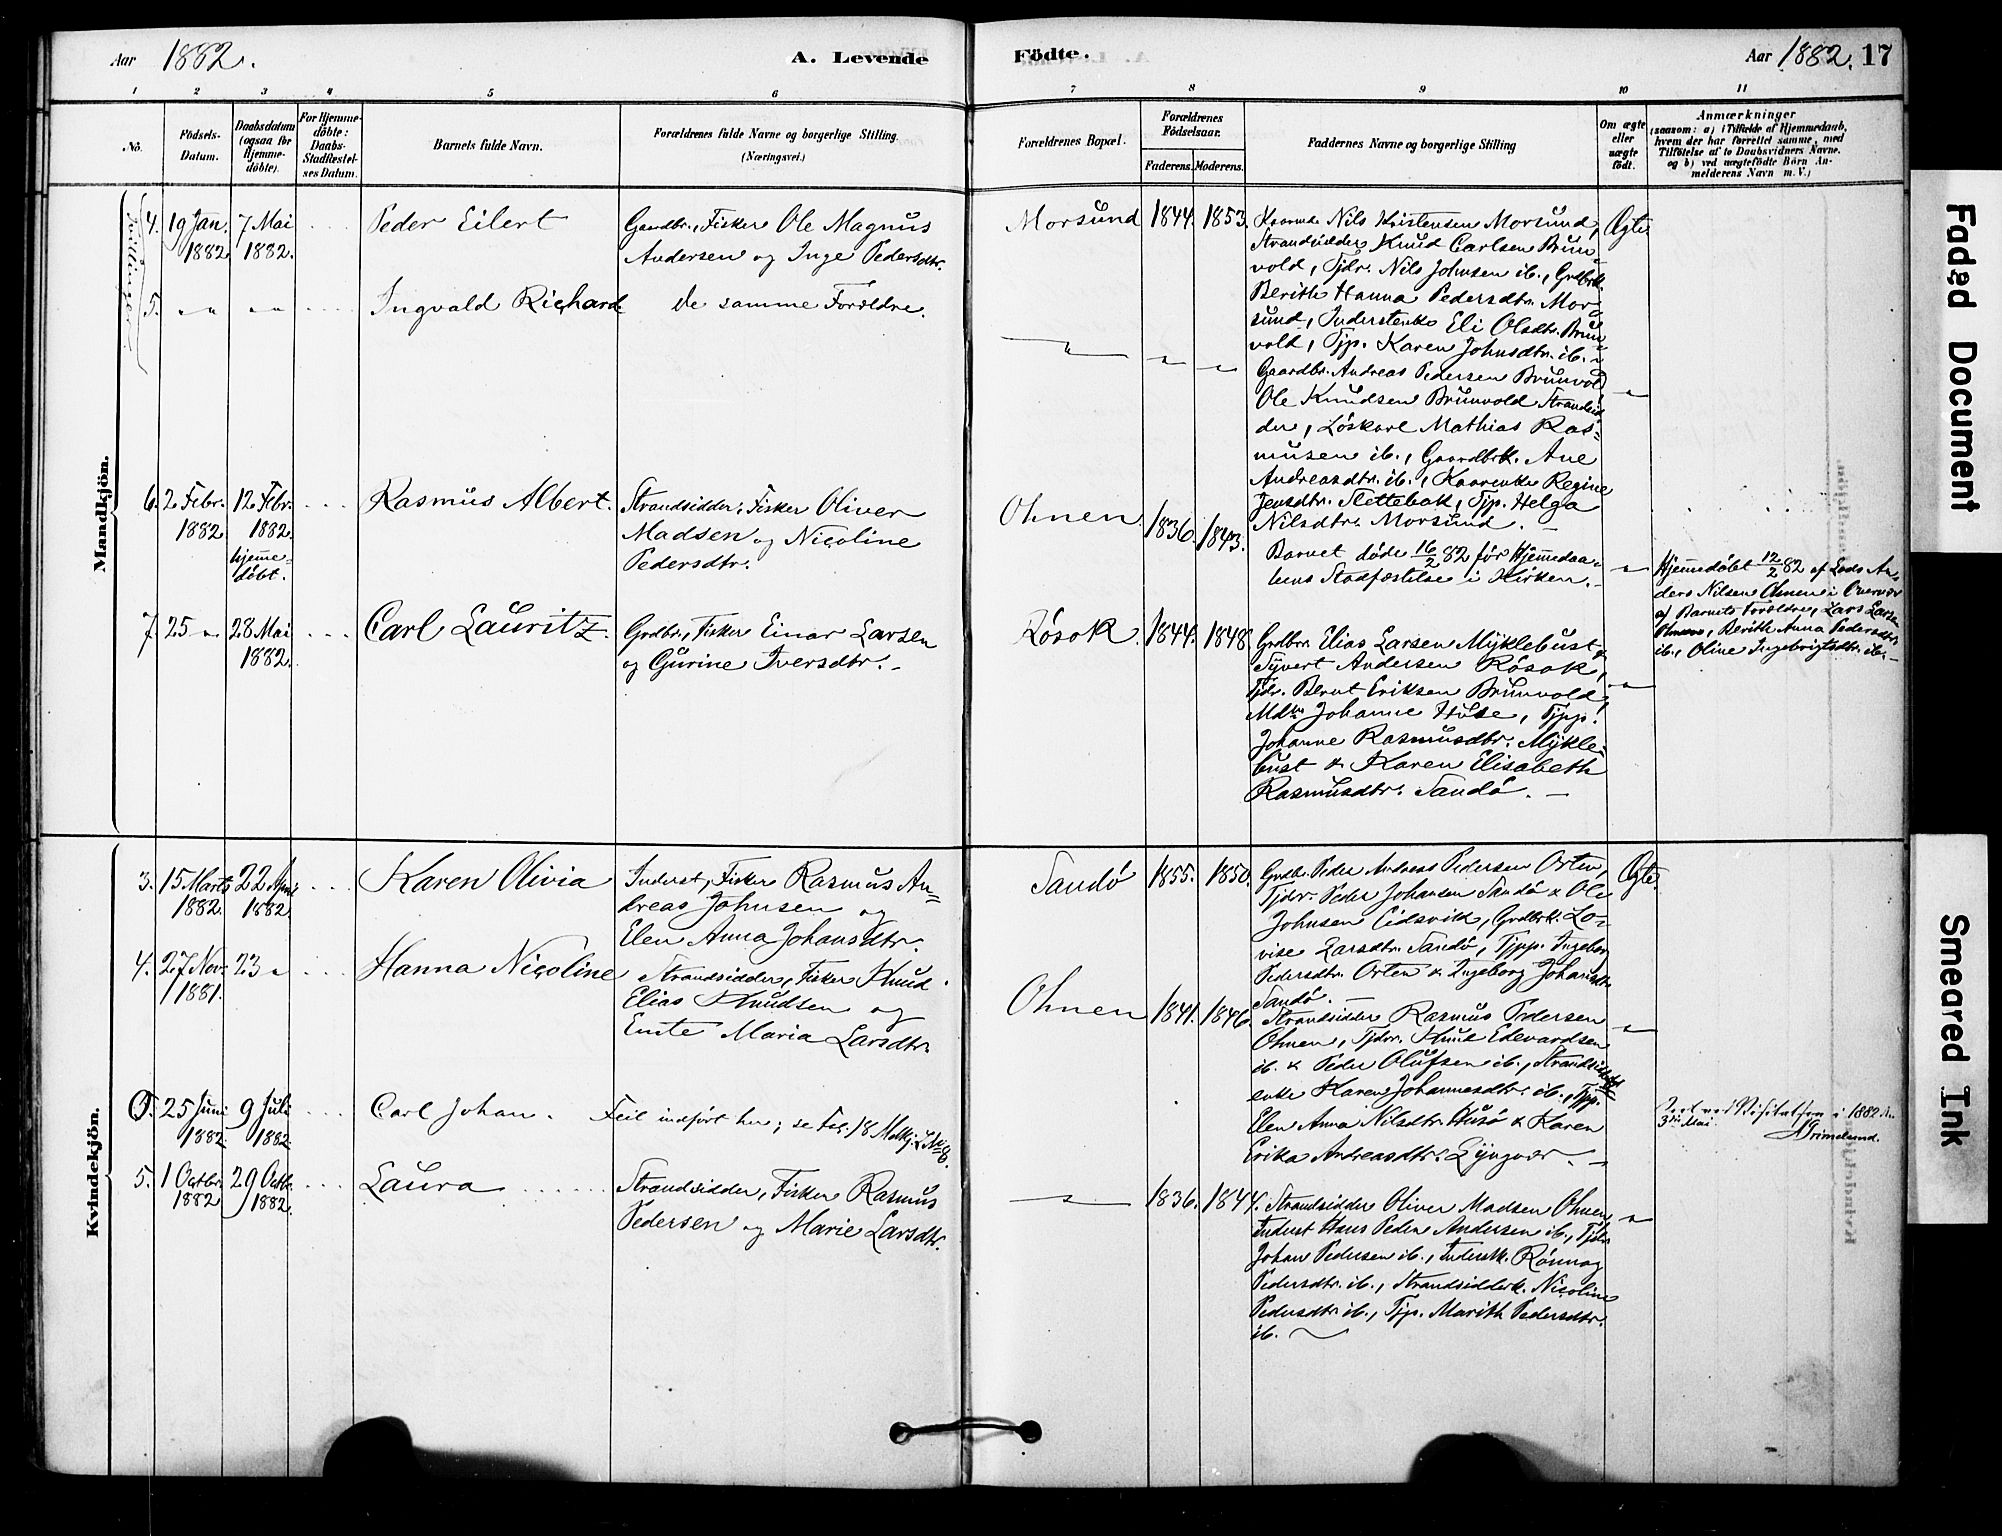 Aar 1882.
A. Levende
Födte.
Aar 1882. 17
1 2 3 4 5 6 7 8 9 10 11
No.
Födsels-
Datum.
Daabsdatum
(ogsaa for
Hjemme-
döbte).
For Hjemme-
döbte:
Daabs-
Stadfæstel-
ses Datum.
Barnets fulde Navn.
Forældrenes fulde Navne og borgerlige Stilling.
(Næringsvei.)
Forældrenes Bopæl.
Forældrenes
Födselsaar.
Faderens. Moderens.
Faddernes Navne og borgerlige Stilling
Om ægte
eller
uægte
födt.
Anmærkninger
(saasom: a) i Tilfælde af Hjemmedaab,
hvem der har forrettet samme, med
Tilföielse af to Daabsvidners Navne,
og b) ved uægtefödte Börn An-
melderens Navn m. V.)
Mandkjön.
Tvillinger
4. 19 Jan.
1882
7 Mai
1882.
Peder Eilert
Gaardbr., Fisker Ole Magnus
Andersen og Inge Pedersdtr.
Morsund 1844. 1853.
Kaarmd. Nils Kristensen Morsund,
Strandsidder Knud Carlsen Brun-
vold, Tjdr. Nils Johnsen ib., Grdbrk.
Berith Hanna Pedersdtr. Mor-
sund, Inderstenke Eli Olsdtr. Brun-
vold, Tjp. Karen Johnsdtr. ib. -
Ægte.
5. " "
Ingvald Richard
De samme Forældre.
Gaardbr. Andreas Pedersen Brunvold
Ole Knudsen Brunvold Strandsid-
der, Löskarl Mathias Ras-
musen ib., Gaardbrk. Ane
Andreasdtr. ib., Kaarenke Regine
Jensdtr. Slettebak, Tjp. Helga
Nilsdtr. Morsund. -
6. 2 Febr.
1882
12 Febr.
1882.
hjemme-
döbt.
Rasmus Albert.
Strandsidder, Fisker Oliver
Madsen og Nicoline
Pedersdtr.
Ohnen 1836. 1843.
Barnet döde 16/2 82 för Hjemmedaa-
bens Stadfæstelse i Kirken. -
Hjemmedöbt 12/2 82 af Lods An-
ders Nilsen Ohnen i Overvær
af Barnets Forældre, Lars Larsen
Ohnen, Berith Anna Pedersdtr.
ib., Oline Ingebrigtsdtr. ib. -
7. 25 "
28 Mai
1882.
Carl Lauritz.
Grdbr., Fisker Einar Larsen
og Gurine Iversdtr. -
Rösok. 1844. 1848.
Grdbr. Elias Larsen Myklebust &
Syvert Andersen Rösok,
Tjdr. Bernt Eriksen Brunvold,
Mdk. Johanne Huse, Tjpp.
Johanne Rasmusdtr. Mykle-
bust & Karen Elisabeth
Rasmusdtr. Sandö. -
Kvindekjön.
3. 15 Marts
1882.
22 April
1882
Karen Olivia
Inderst, Fisker Rasmus An-
dreas Johnsen og
Elen Anna Johansdtr.
Sandö 1855. 1850.
Grdb. Peder Andreas Pedersen Orten,
Tjdr. Peder Johansen Sandö & Ole
Johnsen Eidsvik, Grdbrk. Lo-
vise Larsdtr. Sandö, Tjpp. Ingeborg
Pedersdtr. Orten & Ingeborg Johansdtr.
Sandö. -
Ægte.
4. 27 Nov.
1881.
23 "
Hanna Nicoline
Strandsidder, Fisker Knud
Elias Knudsen og
Emte Maria Larsdtr.
Ohnen 1841. 1846.
Strandsidder Rasmus Pedersen
Ohnen, Tjdr. Knud Edevardsen
ib. & Peder Olufsen ib., Strandsidder-
enke Karen Johannesdtr. ib., Tjpp.
Elen Anna Nilsdtr. Husö & Karen
Erika Andreasdtr. Lyngvær. -
25 Juni
1882.
9 Juli
1882.
Carl Johan.
Feil indfört her; se Fol. 18 Mdkj. L. No 8.
ved Visitatsen i 1882
3die Mai.
Grimelund.
5. 1 Octbr.
1882
29 Octb.
1882.
Laura
Strandsidder, Fisker Rasmus
Pedersen og Marie Larsdtr.
1836. 1844.
Strandsidder Oliver Madsen Ohnen,
Inderst Hans Peder Andersen ib., Tjdr.
Johan Pedersen ib., Inderstk. Rönnog
Pedersdtr. ib., Strandsidderk. Nicoline
Pedersdtr. ib., Tjp. Marith Pedersdtr.
ib.
Faded Document
Smeared Ink